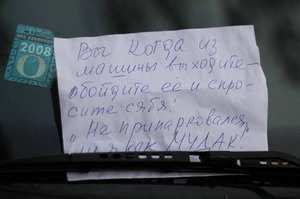 2008
Вы когда из
машины выходите -
обойдите её и спро-
сите сябя:
"Не припарковался
ли я как МУДАК!